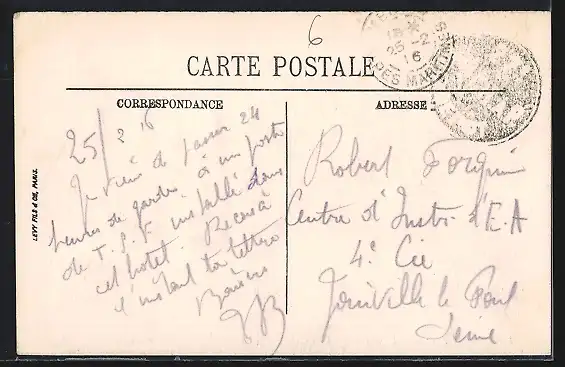 6
CARTE POSTALE
25 -2
16
DES MARITIMES
CORRESPONDANCE
ADRESSE
25/2 16
Je viens de passer 24
heures de garde à un poste
de T.S.F. installé dans
cet hotel. Recois à
l'instant ta lettre
Robert
Centre d'Instr. d'E.A
4e Cie
Joinville le Pont
Seine
LEVY FILS & CIE, PARIS.